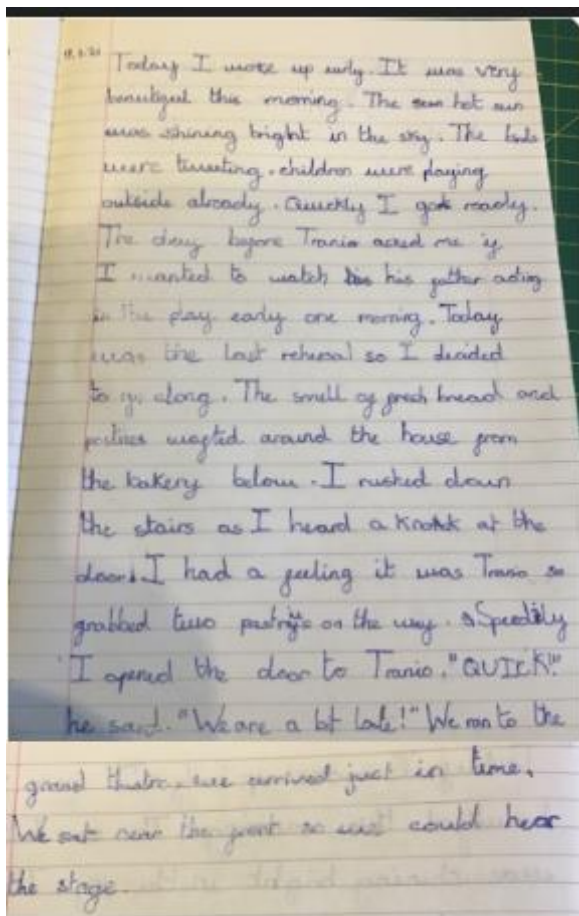 Today I woke up early. It was very
beautiful this morning. The hot sun
was shining bright in the sky. The birds
were tweeting. children were playing
outside already. Quickly I got ready.
The day before Tranio asked me if
I wanted to watch his father acting
in the play early one morning. Today
was the last rehersal so I decided
to go along. The smell of fresh bread and
pastries wafted around the house from
the bakery below. I rushed down
the stairs as I heard a knock at the
door. I had a feeling it was Tranio so
grabbed two pastries on the way. Speedily
I opened the door to Tranio. "QUICK!"
he said. "We are a bit late!" We ran to the
grand theatre. we arrived just in time.
We sat near the front so we could hear
the stage.